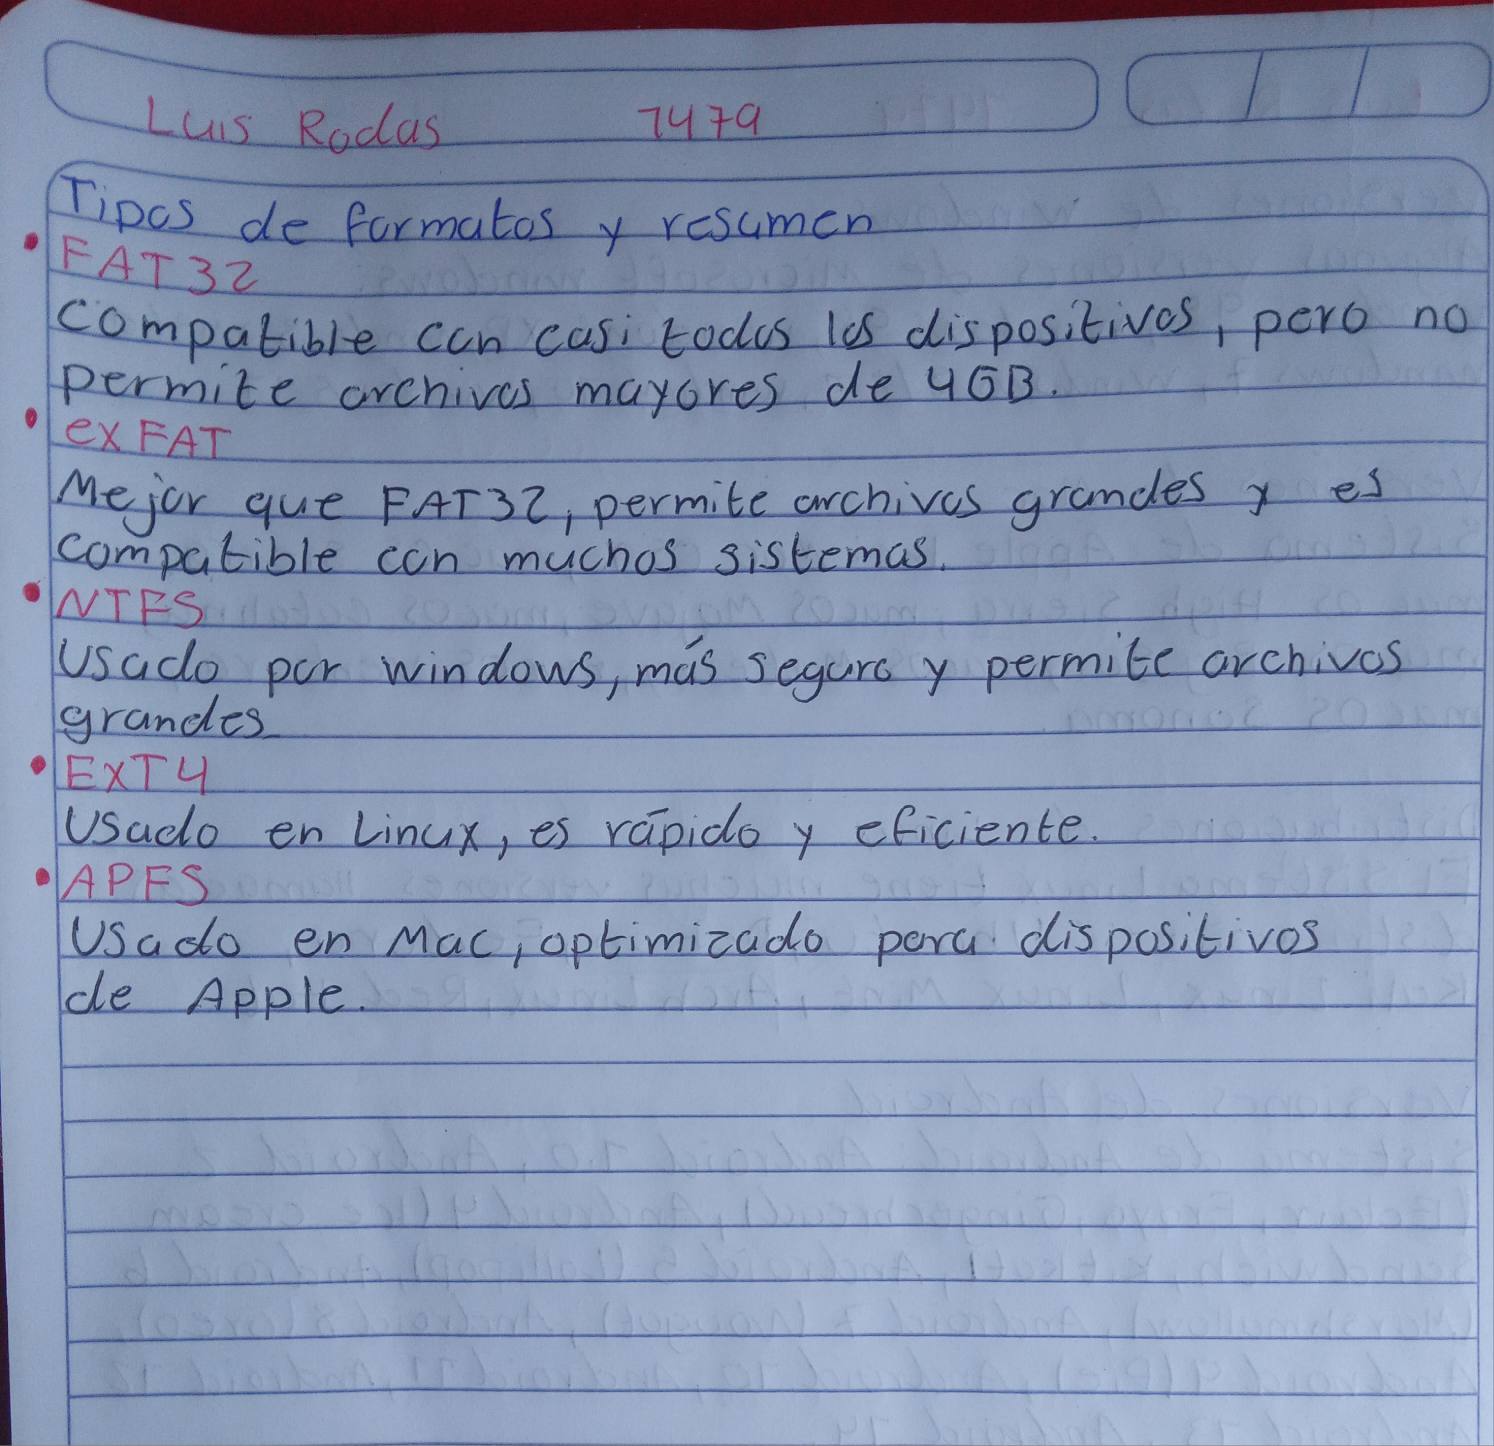 Luis Rodas 7479
Tipos de formatos y resumen
• FAT32
compatible con casi todos los dispositivos, pero no
permite archivos mayores de 4GB.
• exFAT
Mejor que FAT32, permite archivos grandes y es
compatible con muchos sistemas.
• NTFS
Usado por windows, más seguro y permite archivos
grandes
• EXT4
Usado en Linux, es rápido y eficiente.
• APFS
Usado en Mac, optimizado para dispositivos
de Apple.